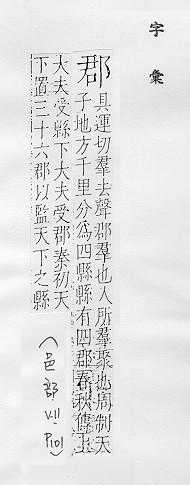 字彙
郡具運切羣去聲郡羣也人所羣聚也周制天
子地方千里分爲四縣縣有四郡春秋傳上
大夫受縣下大夫受郡秦初天
下置三十六郡以監天下之縣
(邑部 VII P101)